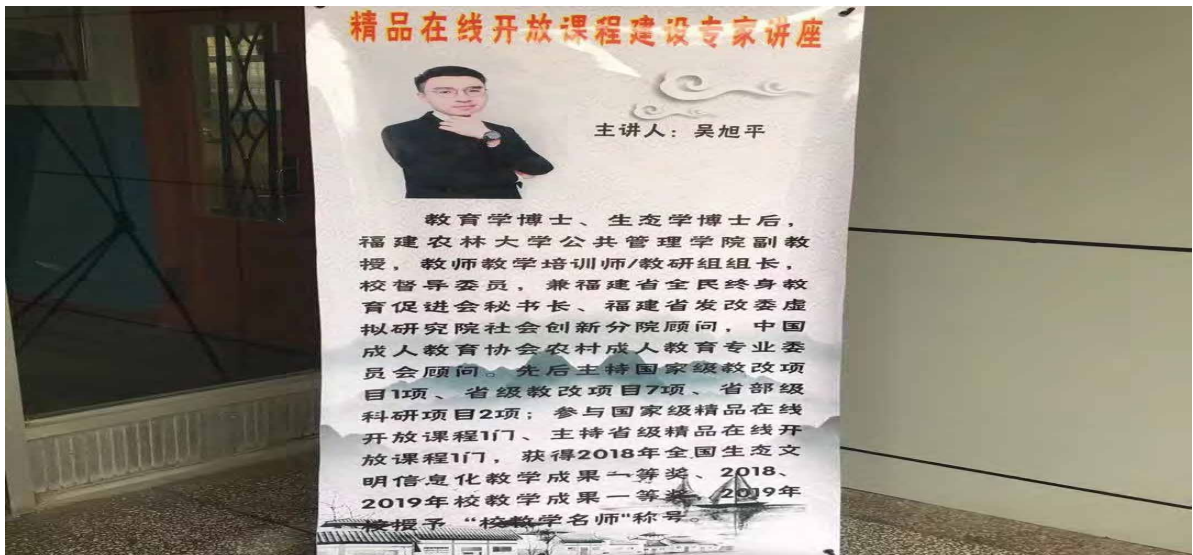 精品在线开放课程建设专家讲座
主讲人：吴旭平
教育学博士、生态学博士后，
福建农林大学公共管理学院副教
授，教师教学培训师/教研组组长，
校督导委员，兼福建省全民终身教
育促进会秘书长、福建省发改委虚
拟研究院社会创新分院顾问，中国
成人教育协会农村成人教育专业委
员会顾问。先后主持国家级教改项
目1项、省级教改项目7项、省部级
科研项目2项；参与国家级精品在线
开放课程1门、主持省级精品在线开
放课程1门，获得2018年全国生态文
明信息化教学成果一等奖、2018、
2019年校教学成果一等奖，2019年
被授予“校教学名师"称号。